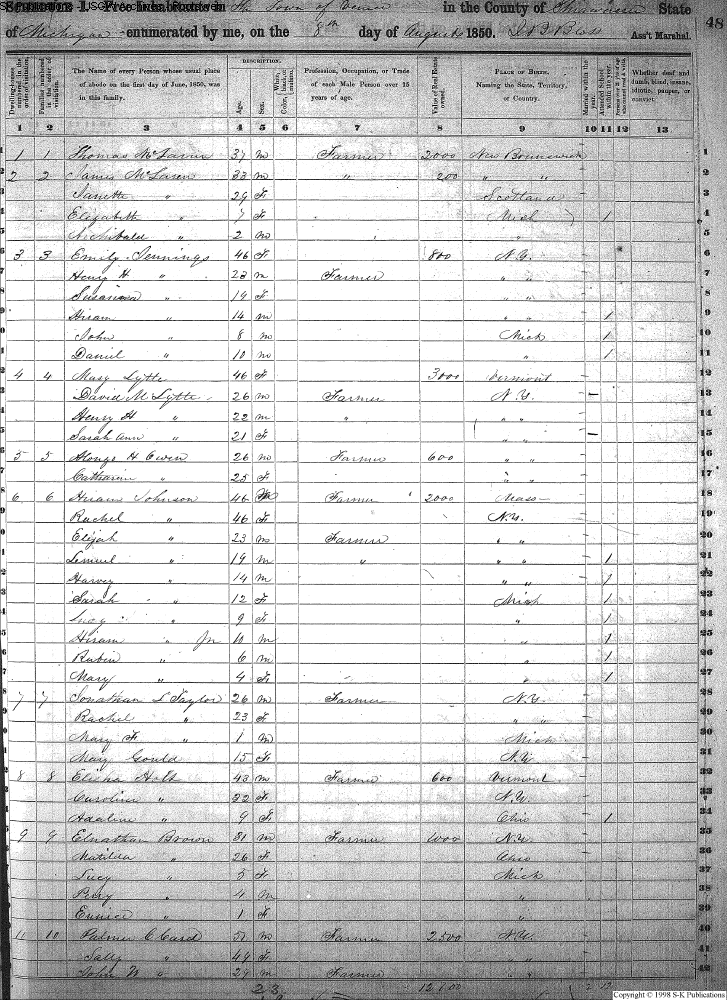 Free Inhabitants in The Town of Venice in the County of Shiawassee State 48
of Michigan enumerated by me, on the 8th day of August 1850. Ass't Marshal.
Dwelling-houses numbered in the order of visitation.
Families numbered in the order of visitation.
The Name of every Person whose usual place of abode on the first day of June, 1850, was in this family.
DESCRIPTION.
Age.
Sex.
White, black, or mulatto.
Color,
Profession, Occupation, or Trade of each Male Person over 15 years of age.
Value of Real Estate owned.
PLACE OF BIRTH. Naming the State, Territory, or Country.
Married within the year.
Attended School within the year.
Whether deaf and dumb, blind, insane, idiotic, pauper, or convict.
1 2 3 4 5 6 7 8 9 10 11 12 13
1 1 Thomas McLaren 37 m Farmer 2000 New Brunswick 1
2 2 James McLaren 33 m " 200 " " 2
Janette " 29 F Scotland 3
Elizabeth " 7 F Mich 1 4
Archibald " 2 m " 5
3 3 Emily Jennings 46 F 800 N.Y. 6
Henry H " 23 m Farmer " " 7
Susanna " 19 F " " 8
Hiram " 14 m " " 1 9
John " 8 m Mich 1 10
Daniel " 10 m " 1 11
4 4 Mary Lytle 46 F 3000 Vermont 12
David M Lytle 26 m Farmer N.Y. 13
Henry H " 22 m " " " 14
Sarah Ann " 21 F " " 15
5 5 Alonzo H Owen 26 m Farmer 600 " " 16
Catharine " 25 F " " 17
6 6 Hiram Johnson 46 m Farmer 2000 Mass 18
Rachel " 46 F N.Y. 19
Elijah " 23 m Farmer " " 20
Lemuel " 19 m " " " 1 21
Harvey " 14 m " " 1 22
Sarah " 12 F Mich 1 23
Lucy " 9 F " 1 24
Hiram " Jr 10 m " 1 25
Rubin " 6 m " 1 26
Mary " 4 F " 1 27
7 7 Jonathan L Taylor 26 m Farmer N.Y 28
Rachel " 23 F " " 29
Mary F " 1 m Mich 30
Mary Gould 15 F N.Y. 31
8 8 Elisha Holt 43 m Farmer 600 Vermont 32
Caroline " 32 F N.Y. 33
Adaline " 9 F Ohio 1 34
9 9 Elnathan Brown 31 m Farmer 1000 N.Y. 35
Matilda " 26 F Ohio 36
Lucy " 5 F Mich 37
Perry " 4 m " 38
Eunice " 1 F " 39
11 10 Palmer C Card 51 m Farmer 2500 N.Y. 40
Sally " 49 F " " 41
John W " 29 m Farmer " " 42
23
Copyright © 1998 S-K Publications